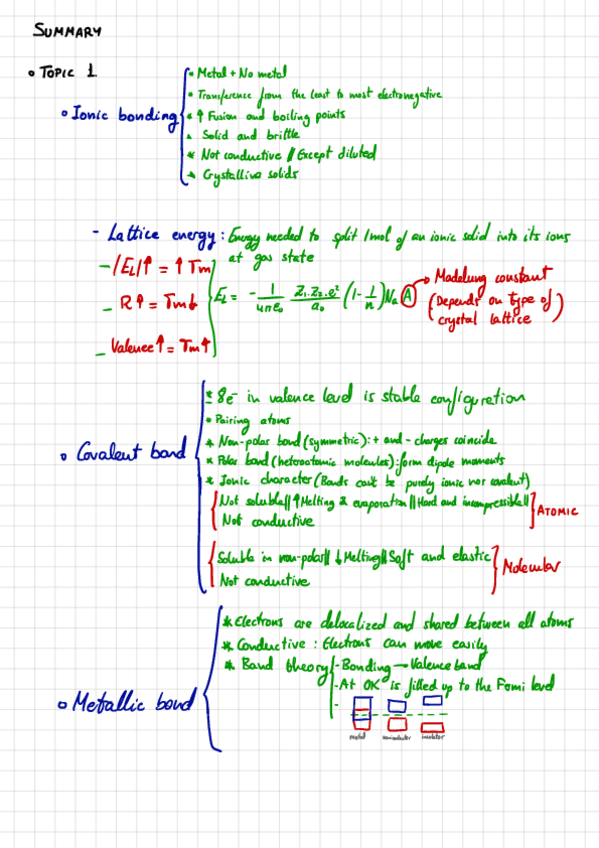 SUMMARY
• TOPIC 1
• Ionic bonding
• Metal + No metal
• Transference from the least to most electronegative
* ↑ Fusion and boiling points
• Solid and brittle
* Not conductive // Except diluted
* Crystalline solids
- Lattice energy: Energy needed to split 1mol of an ionic solid into its ions
at gas state
- |E_L|↑ = ↑Tm
- R↑ = Tm↓
- Valence↑ = Tm↑
E_L = - 1/4πε₀ Z₁.Z₂.e²/a₀ (1 - 1/n) Na A
→ Madelung constant
(Depends on type of
crystal lattice)
• Covalent bond
* 8e⁻ in valence level is stable configuration
• Pairing atoms
* Non-polar bond (symmetric): + and - charges coincide
* Polar bond (heteroatomic molecules): form dipole moments
* Ionic character (Bonds can't be purely ionic nor covalent)
Not soluble || ↑Melting & evaporation || Hard and incompressible ||
Not conductive
ATOMIC
Soluble in non-polar || ↓Melting || Soft and elastic
Not conductive
Molecular
• Metallic bond
* Electrons are delocalized and shared between all atoms
* Conductive: Electrons can move easily
* Band theory
- Bonding → Valence band
- At 0K is filled up to the Femi level
-
metal semiconductor insulator